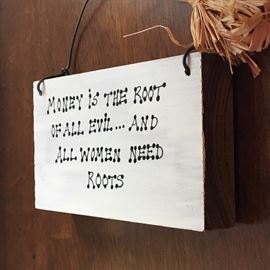 MONEY IS THE ROOT
OF ALL EVIL... AND
ALL WOMEN NEED
ROOTS